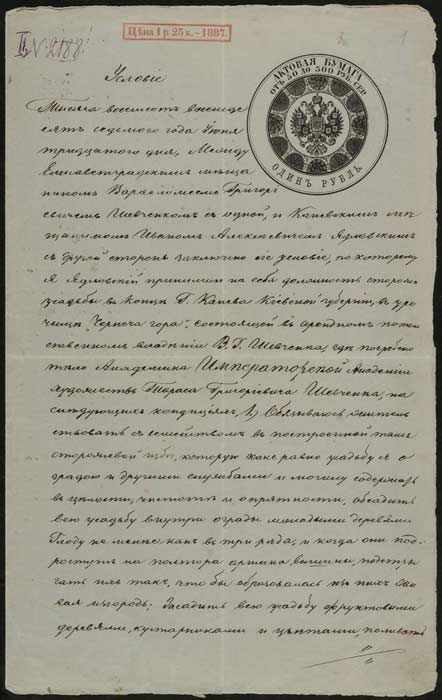 II № 2188
Цѣна 1 р. 25 к. – 1887.
АКТОВАЯ БУМАГА
ОТЪ 50 ДО 300 РУБ. СЕР.
ОДИНЪ РУБЛЬ.
Условіе
Тысяча восемсотъ восемьде
сятъ седьмого года Іюня
тридцатого дня, Между
Елисаветградскимъ мѣща
ниномъ Варфоломеемъ Григорі
евичемъ Шевченкомъ съ одной, и Каневскимъ мѣ
щаниномъ Иваномъ Алексѣевичемъ Ядловскимъ
съ другой стороны заключено сіе условіе, по которому
я Ядловскій принимаю на себя должность сторожа
усадьбы въ концѣ Г. Канева Кіевской губерніи, въ уро
чищѣ "Чернеча гора", состоящей въ арендномъ потом
ственномъ владѣніи В. Г. Шевченка, гдѣ погребено
тѣло Академика Императорской Академіи
художествъ Тараса Григоріевича Шевченка, на
слѣдующихъ кондиціяхъ, 1) Обязываюсь жительс
ствовать съ семействомъ въ построенной тамъ
сторожевой избѣ, которую какъ равно усадьбу съ о
градою и другими службами и могилу содержать
въ цѣлости, чистотѣ и опрятности, обсадить
всю усадьбу внутри ограды молодыми деревьями
Глоду не менѣе какъ въ три ряда, и когда они под
ростутъ на полтора аршина вышины, подстри
гать ихъ такъ, что бы образовалась изъ нихъ жи
вая изгородь; Засадить всю усадьбу фруктовыми
деревьями, кустарниками и цвѣтами, поливать